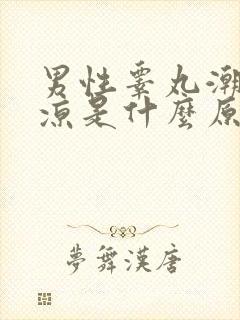 男性睾丸潮
涼是什麼原
夢舞漢唐